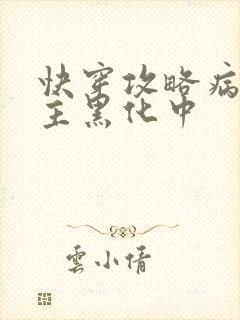 快穿攻略病
主黑化中
雲小倩